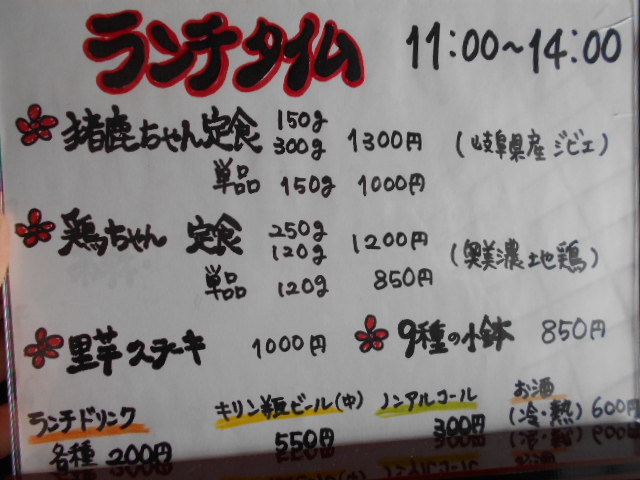 ランチタイム 11:00〜14:00
猪鹿ちゃん定食 150g 300g 1300円 (岐阜県産ジビエ)
単品 150g 1000円
鶏ちゃん 定食 250g 120g 1200円 (奥美濃地鶏)
単品 120g 850円
里芋ステーキ 1000円 9種の小鉢 850円
ランチドリンク キリン瓶ビール(中) ノンアルコール お酒
各種 200円 550円 300円 (冷・熱) 600円